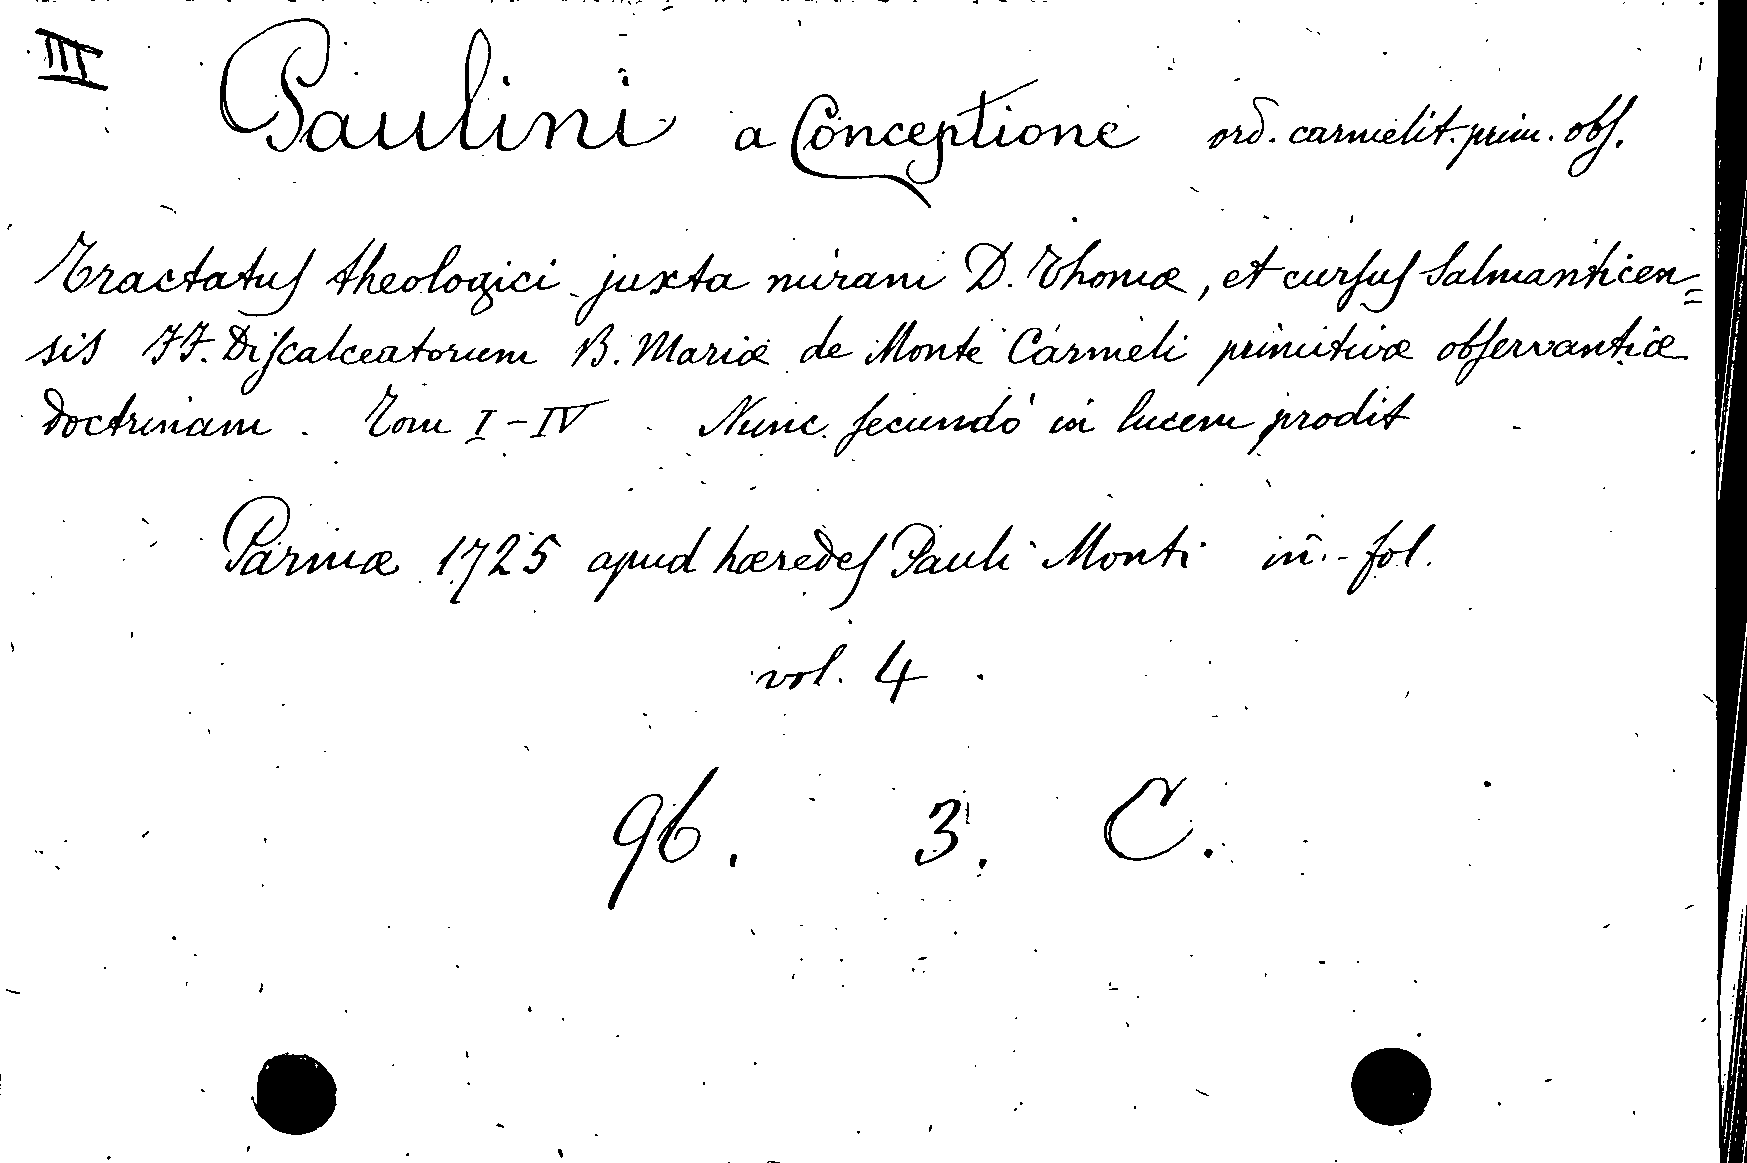 III
Paulini a Conceptione ord. carmelit. prim. obs.
Tractatus theologici juxta miram D. Thomæ, et cursus Salmanticen=
sis FF. Discalceatorum B. Mariæ de Monte Carmeli primitivæ observantiæ
doctrinam. Tom I-IV Nunc secundò in lucem prodit
Parmæ 1725 apud hæredes Pauli Monti in-fol.
vol. 4
96. 3. C.